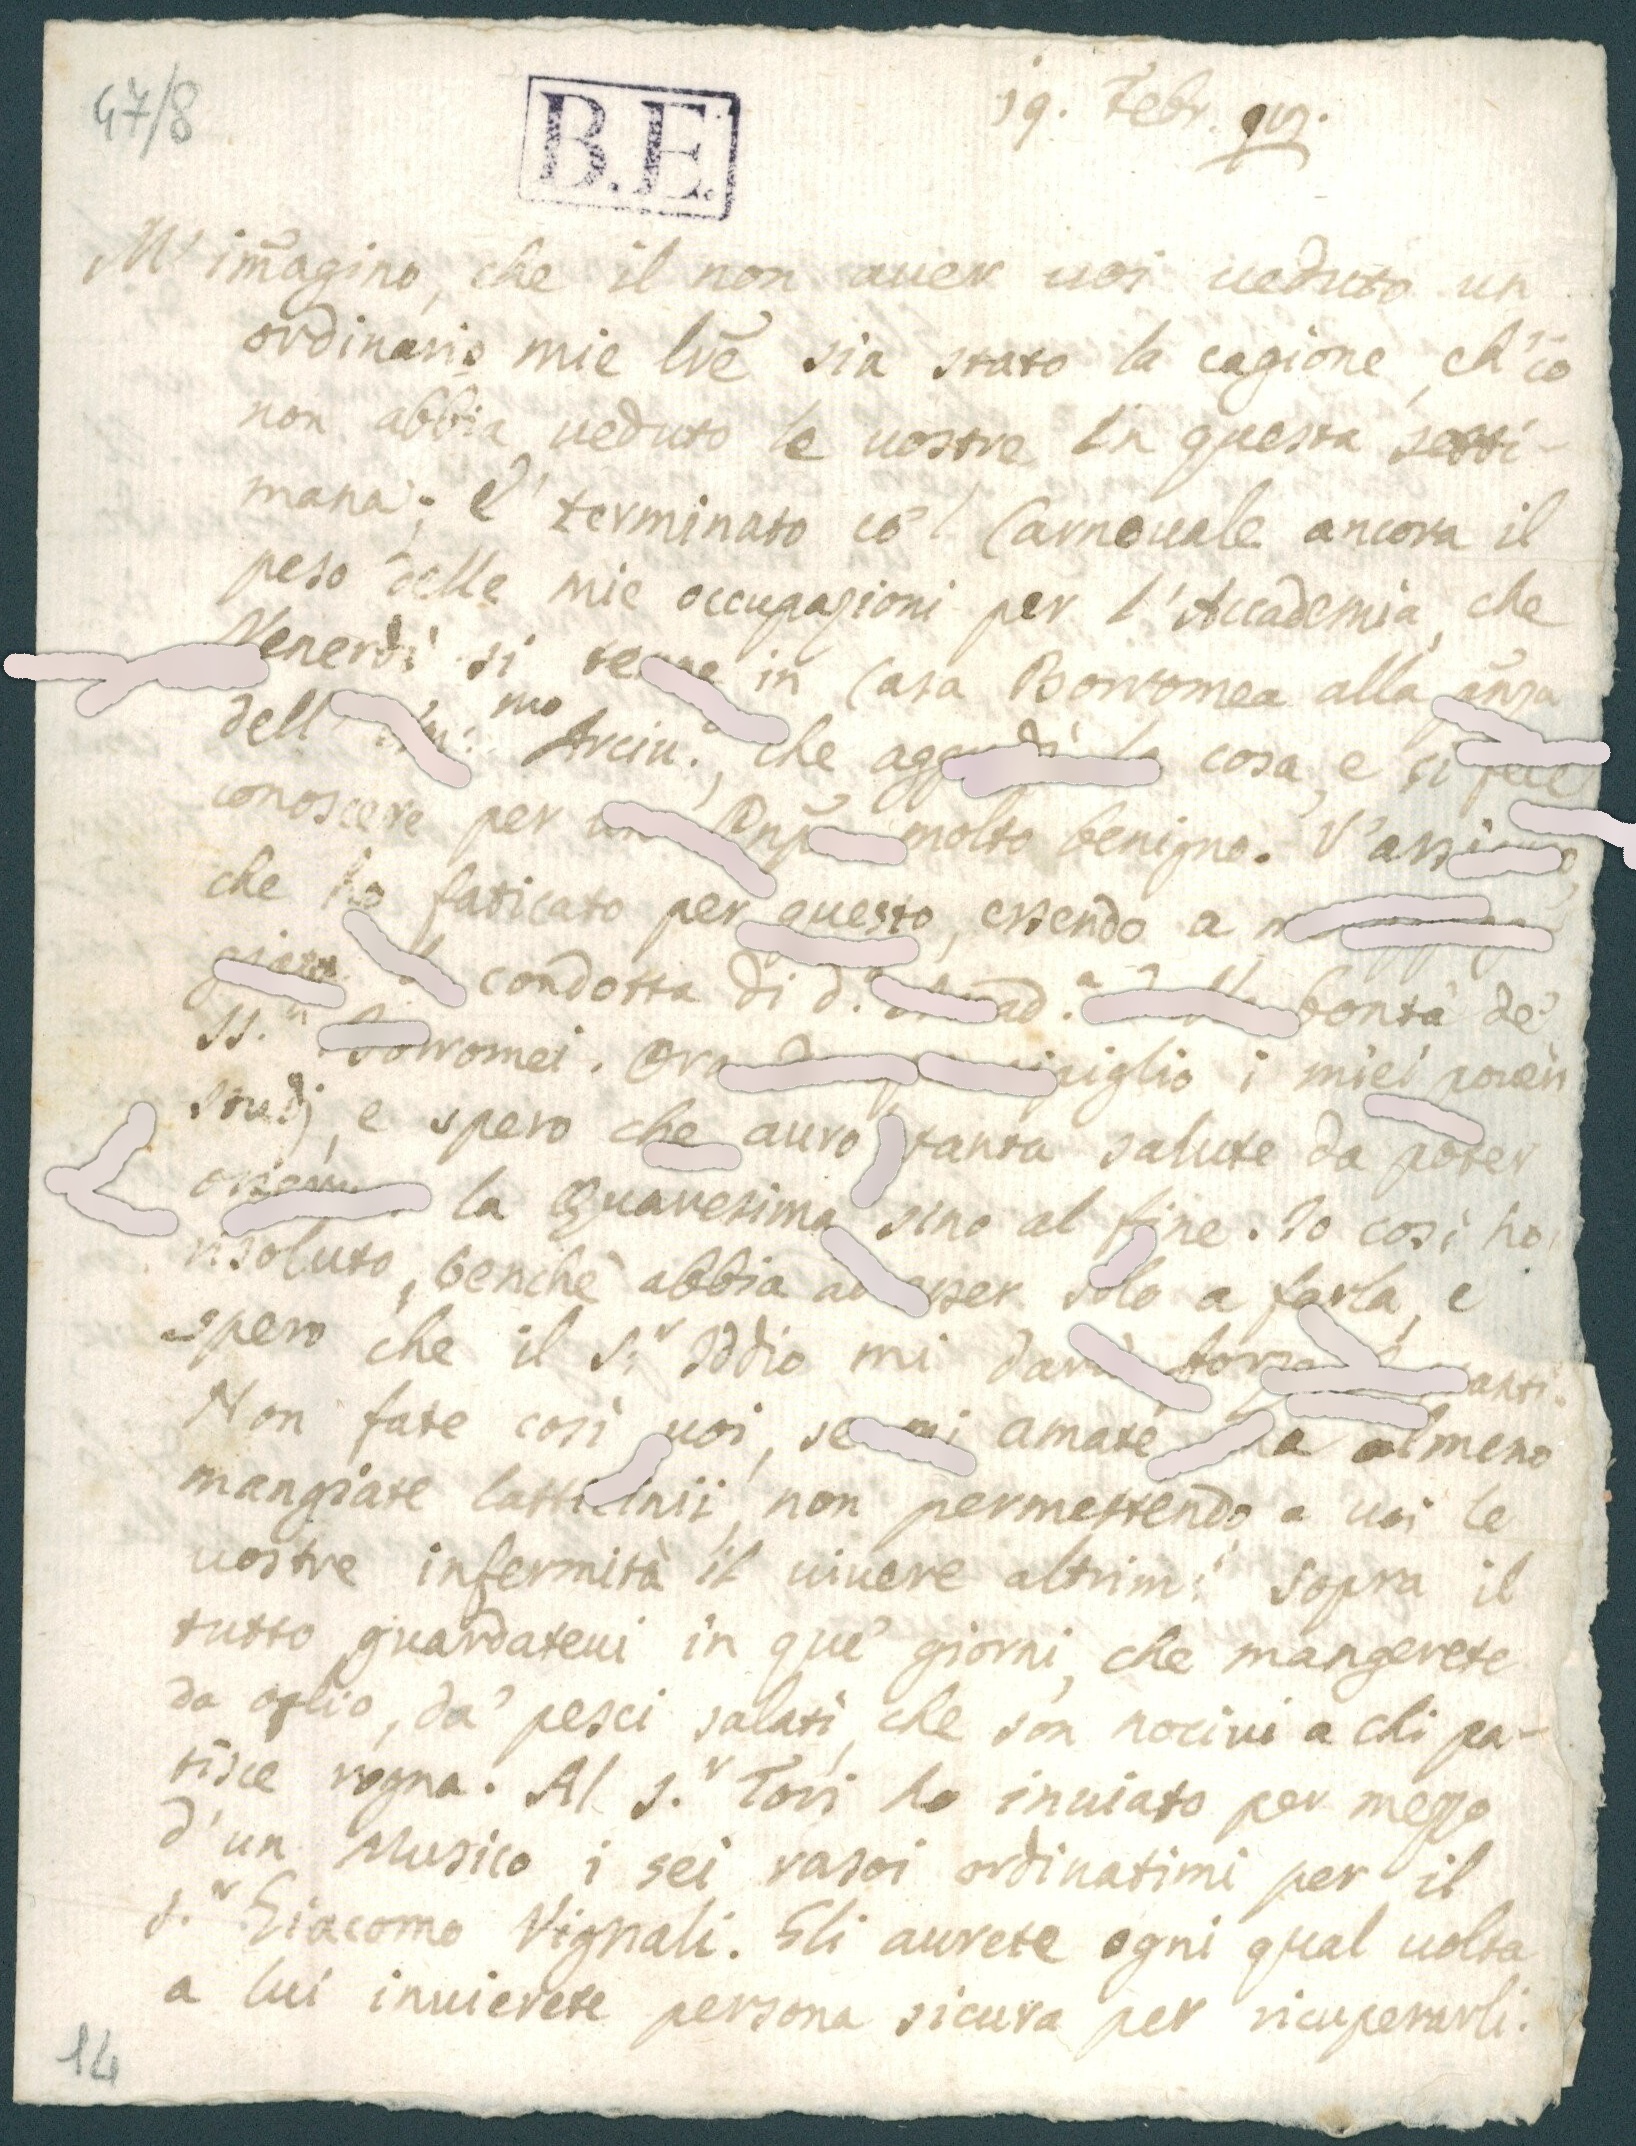 47/8
B.E.
19. Febr. 99.
M'im̃agino, che il non auer uoi ueduto un
ordinario mie lr̃e sia stato la cagione, ch'io
non abbia ueduto le uostre in questa setti-
mana; E' terminato co'l Carnouale ancora il
peso delle mie occupazioni per l'Accademia, che
Venerdì si in Casa Borromea alla
dell' mo Arciu.o, che la cosa, e si
conoscere per molto benigno.
che ho faticato per questo, essendo a
condotta di d.a bontà de'
ss.ri Borromei. Ora i miei poueri
studj, e spero che auro tanta salute da poter
la Quaresima sino al fine. Io così ho
risoluto, benchè abbia ad esser solo a farla, e
spero che il S.r Iddio mi darà
Non fate così uoi, se mi amate, ma almeno
mangiate latticinii, non permettendo a uoi le
uostre infermità il uiuere altrim.i Sopra il
tutto guardateui in que' giorni, che mangerete
da oglio, da' pesci salati, che son nociui a chi pa-
tisce rogna. Al S.r Tori ho inuiato per mezzo
d'un Musico i sei rasoi ordinatimi per il
S.r Giacomo Vignali. Gli aurete ogni qual uolta
a lui inuierete persona sicura per ricuperarli.
14